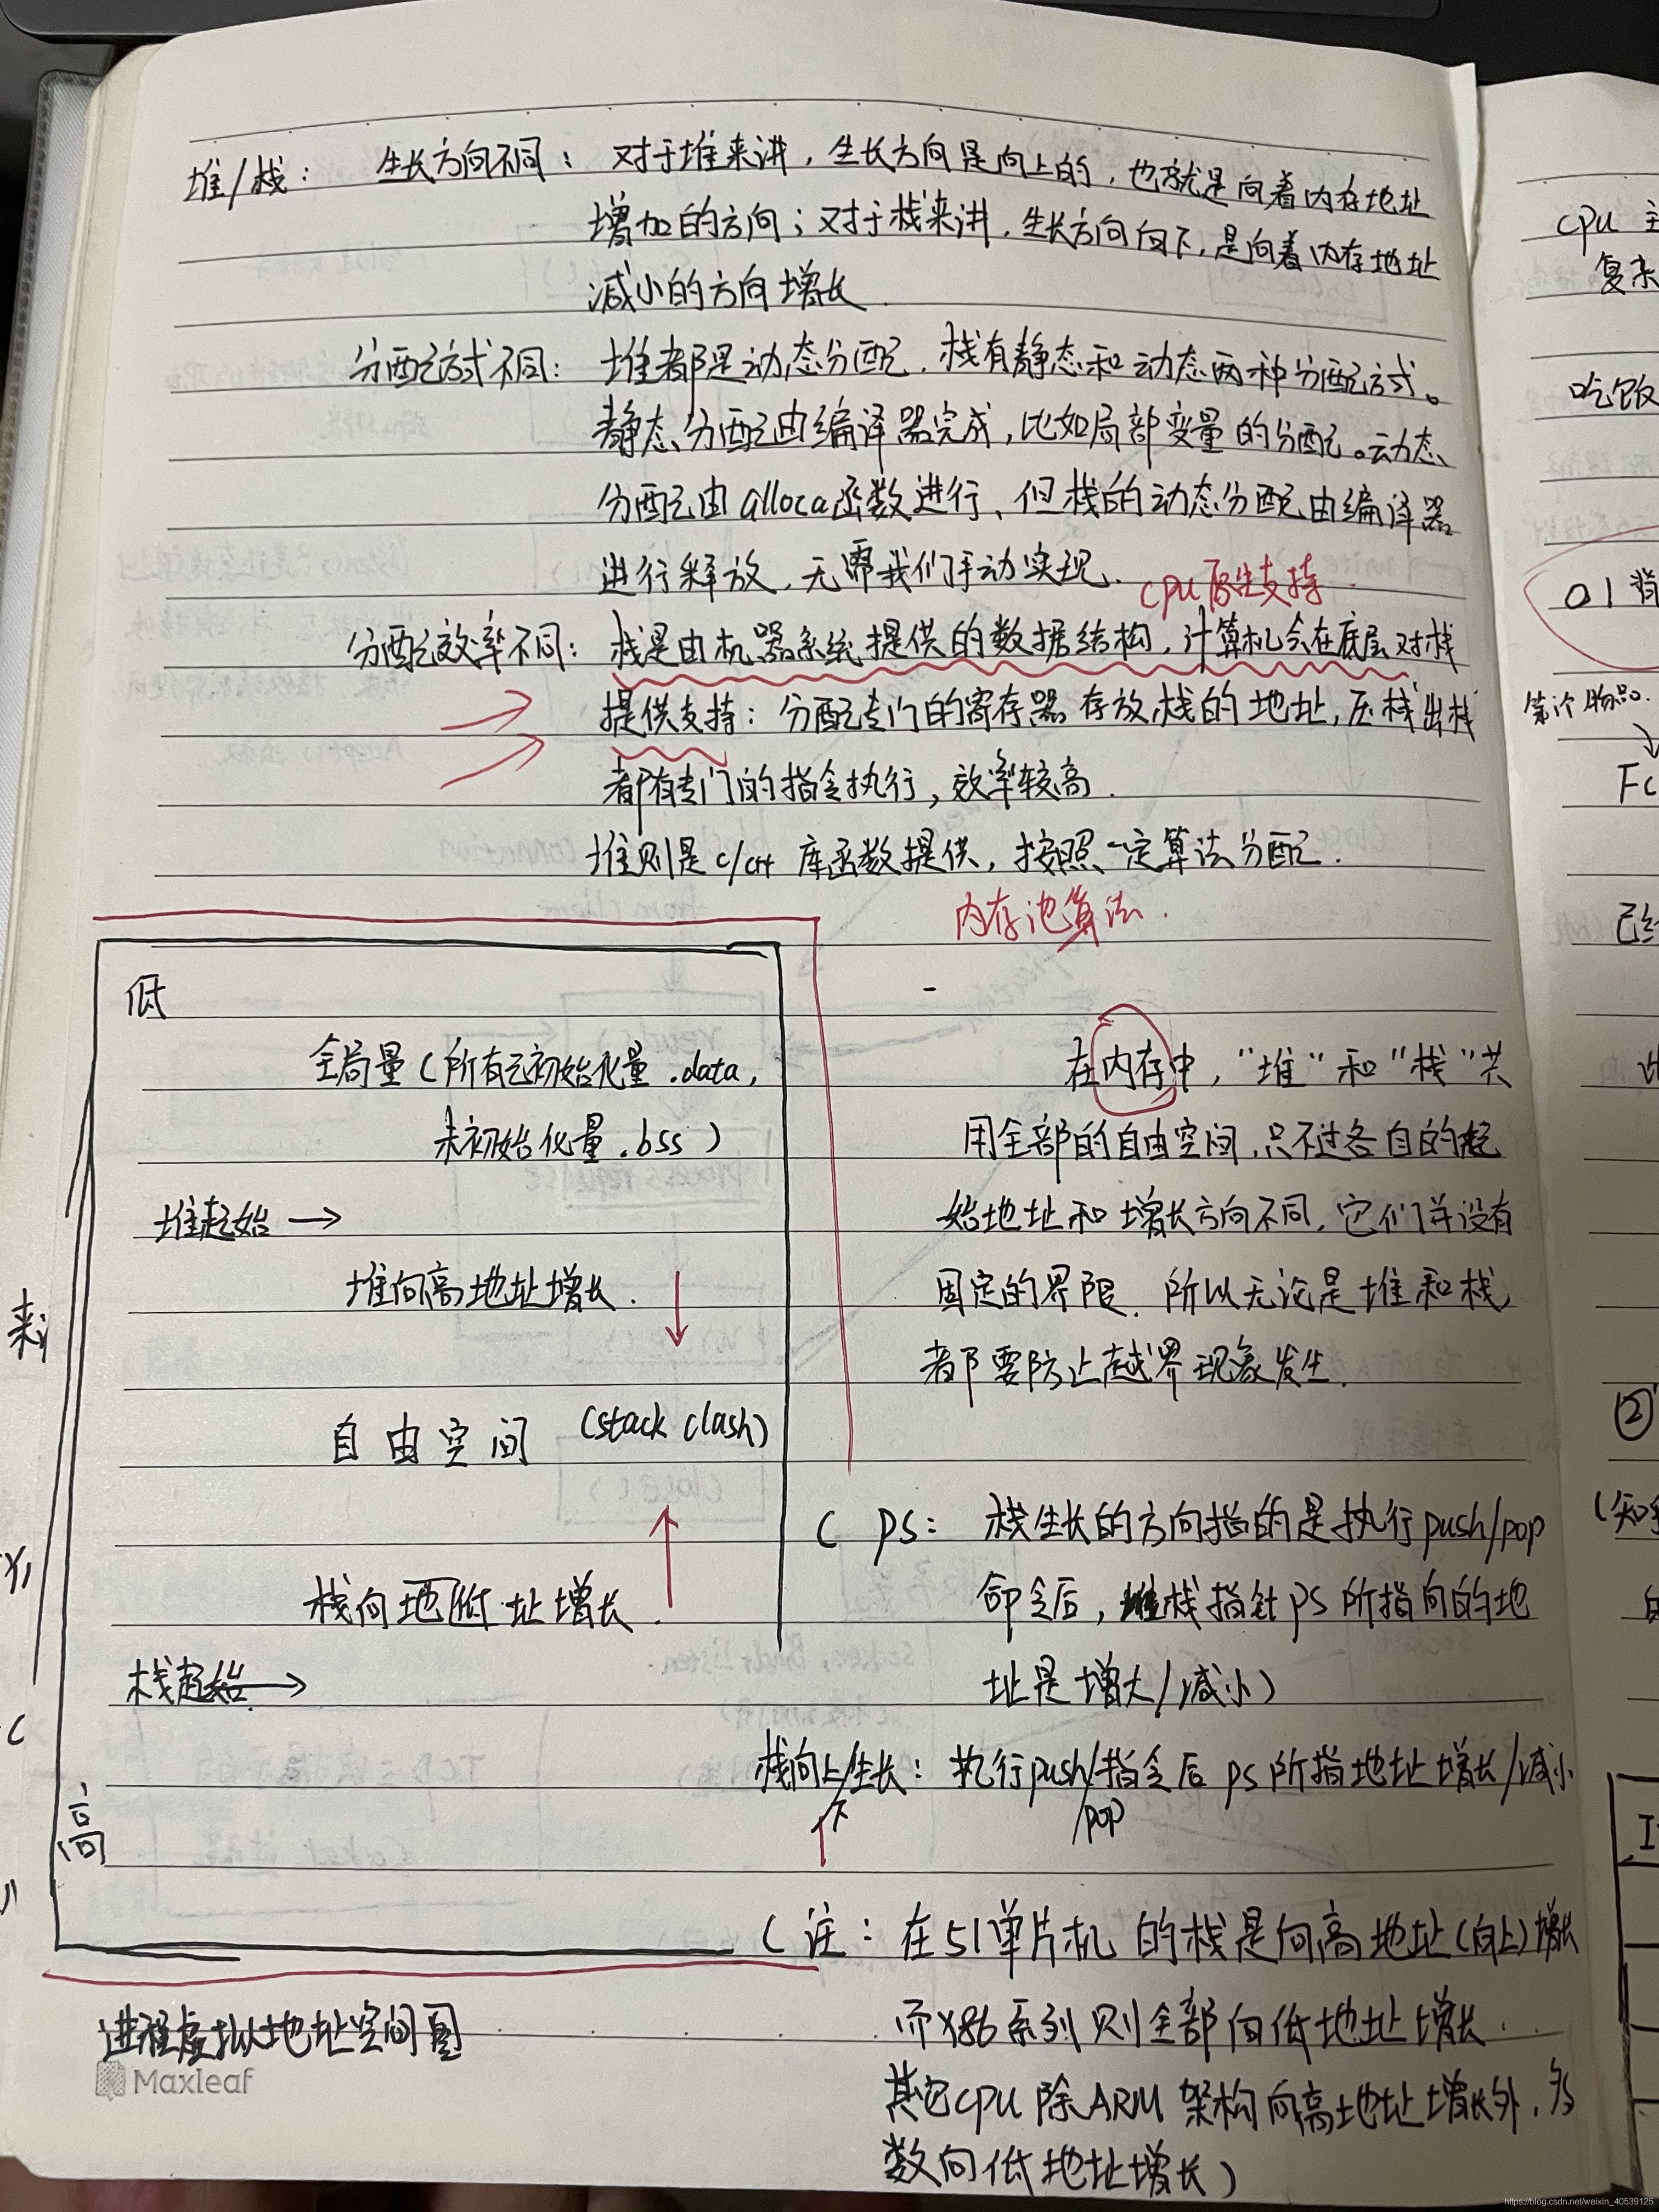 堆/栈： 生长方向不同： 对于堆来讲，生长方向是向上的，也就是向着内存地址
增加的方向；对于栈来讲，生长方向向下，是向着内存地址
减小的方向增长
分配方式不同： 堆都是动态分配，栈有静态和动态两种分配方式。
静态分配由编译器完成，比如局部变量的分配。动态
分配由alloca函数进行，但栈的动态分配由编译器
进行释放，无需我们手动实现.
CPU原生支持
分配效率不同： 栈是由机器系统提供的数据结构，计算机会在底层对栈
提供支持：分配专门的寄存器存放栈的地址，压栈出栈
都有专门的指令执行，效率较高.
堆则是C/C++ 库函数提供，按照一定算法分配.
内存池算法.
低
全局量（所有已初始化量 .data，
未初始化量 .bss）
堆起始 →
堆向高地址增长.
自由空间 (stack clash)
栈向地低址增长.
栈起始 →
高
进程虚拟地址空间图
Maxleaf
在内存中，"堆"和"栈"共
用全部的自由空间，只不过各自的起
始地址和增长方向不同，它们并没有
固定的界限. 所以无论是堆和栈
都要防止越界现象发生.
( PS： 栈生长的方向指的是执行push/pop
命令后，栈指针PS所指向的地
址是增大/减小)
栈向上/下生长：执行push/pop指令后PS所指地址增长/减小
(注：在51单片机的栈是向高地址(向上)增长
而X86系列则全部向低地址增长.
其它CPU除ARM架构向高地址增长外，多
数向低地址增长)
CPU
复杂
吃饭
01背
第i个物品.
已经
②
来
https://blog.csdn.net/weixin_40539125